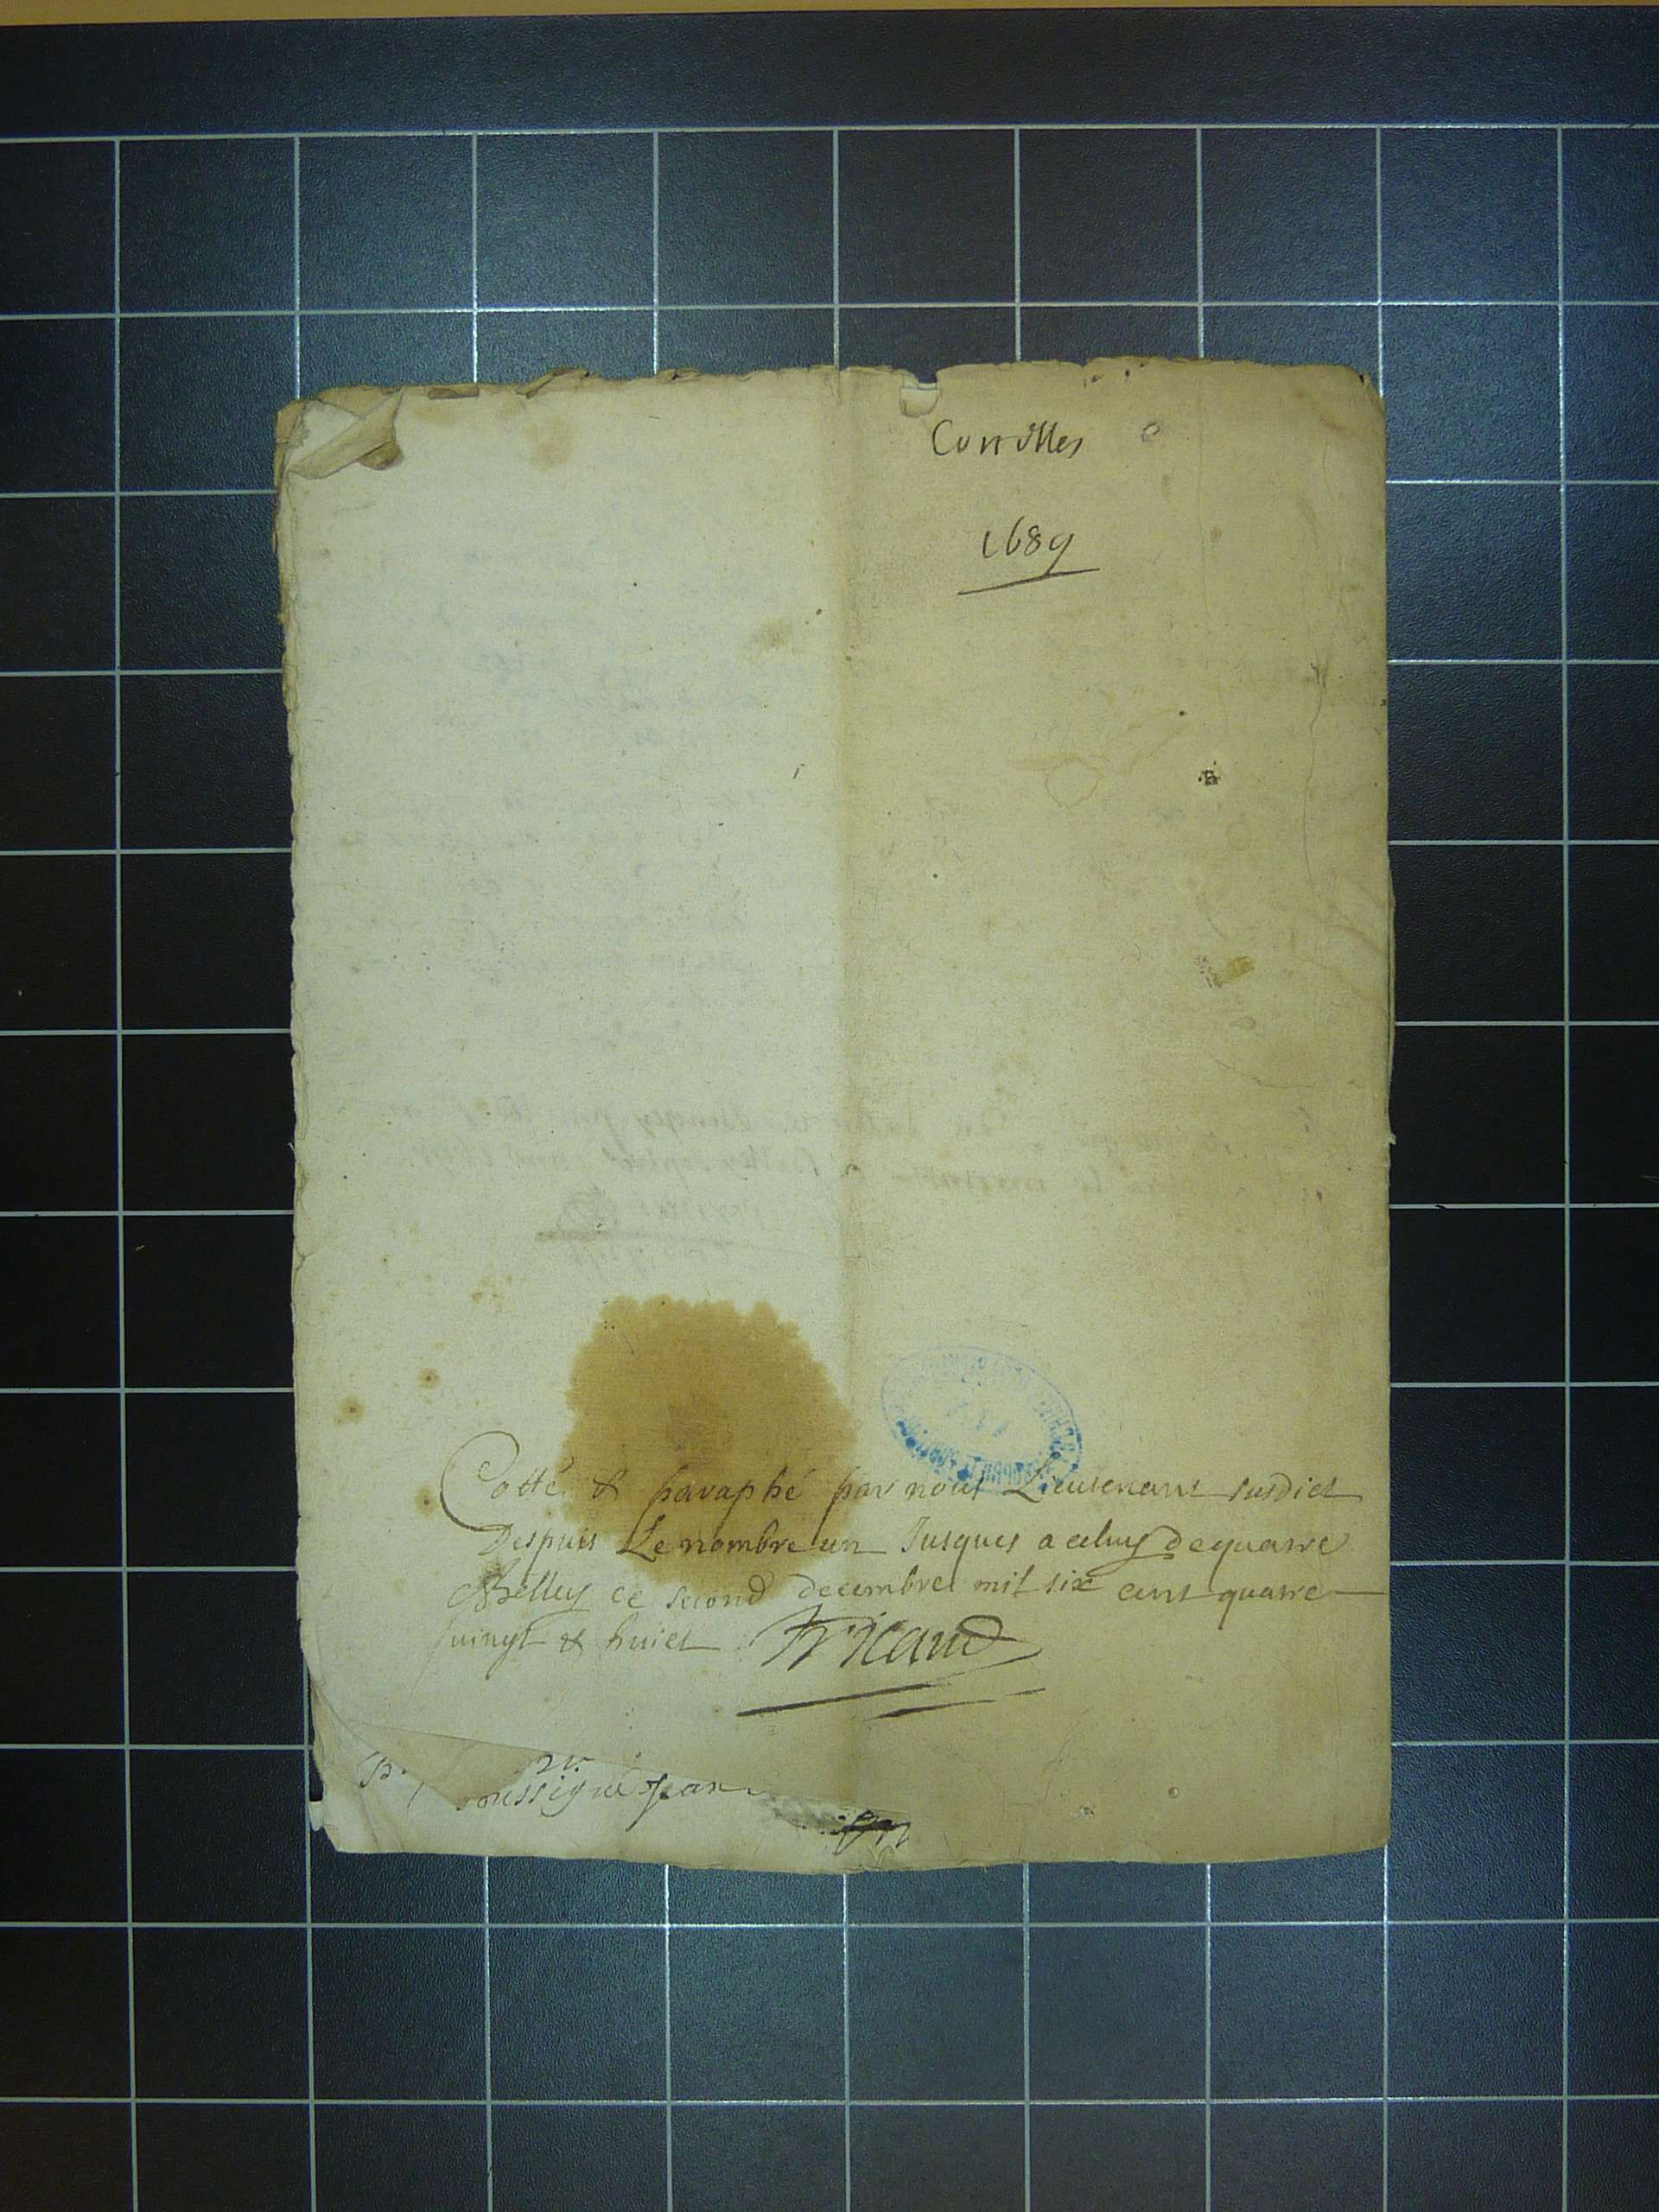 1689
Cotté & paraphé par nous Lieutenant susdict
Despuis Le nombre un Jusques a celuy de quatre
ABelley ce second decembre mil six cent quatre
vingt & huict
soussigné Jean